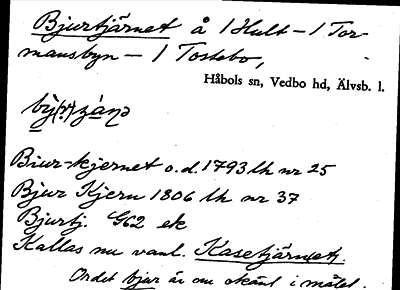 Bjurtjärnet å 1 Hult - 1 Tor-
mansbyn - 1 Tostebo,
Håbols sn, Vedbo hd, Älvsb. l.
Biur-kjernet o.d. 1793 lh nr 25
Bjur Kjern 1806 lh nr 37
Bjurtj. G62 ek
Kallas nu vanl. Kasetjärnet.
Ordet bjur är nu okänt i målet.